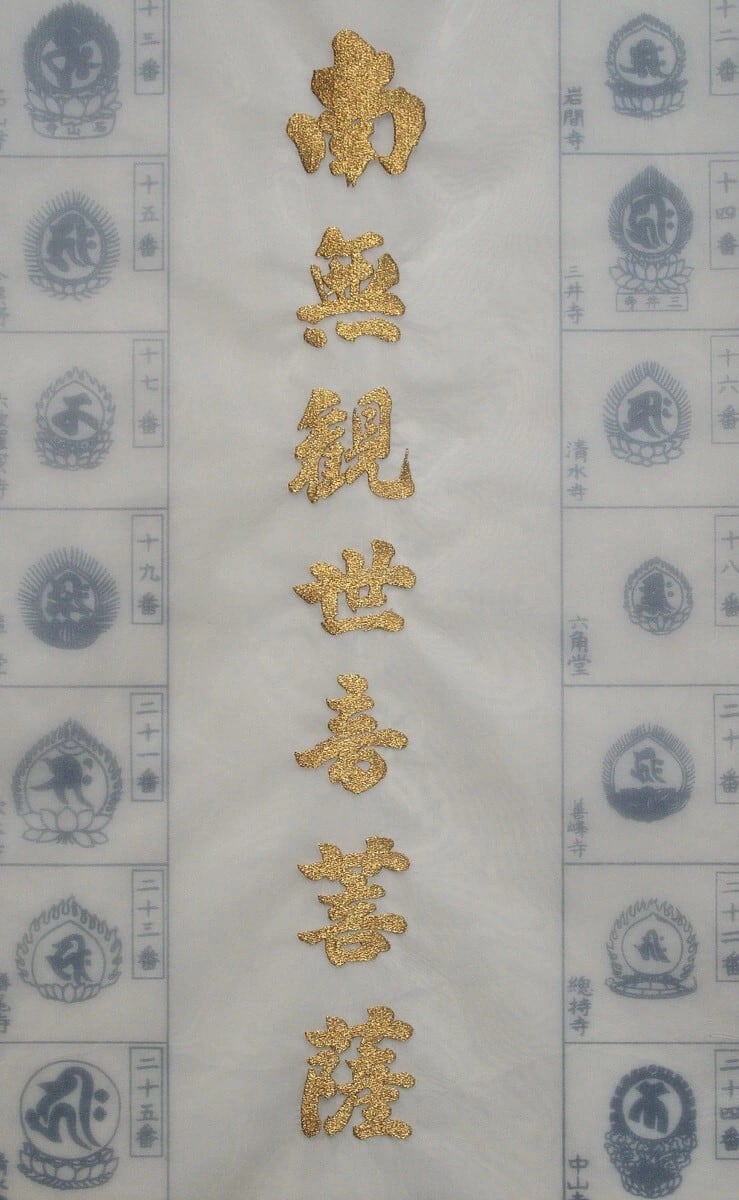 南無観世音菩薩
十二番
岩間寺
十四番
三井寺
三井寺
十六番
清水寺
十八番
六角堂
二十番
善峰寺
二十二番
總持寺
二十四番
中山
十三番
石山寺
十五番
十七番
十九番
二十一番
二十三番
二十五番